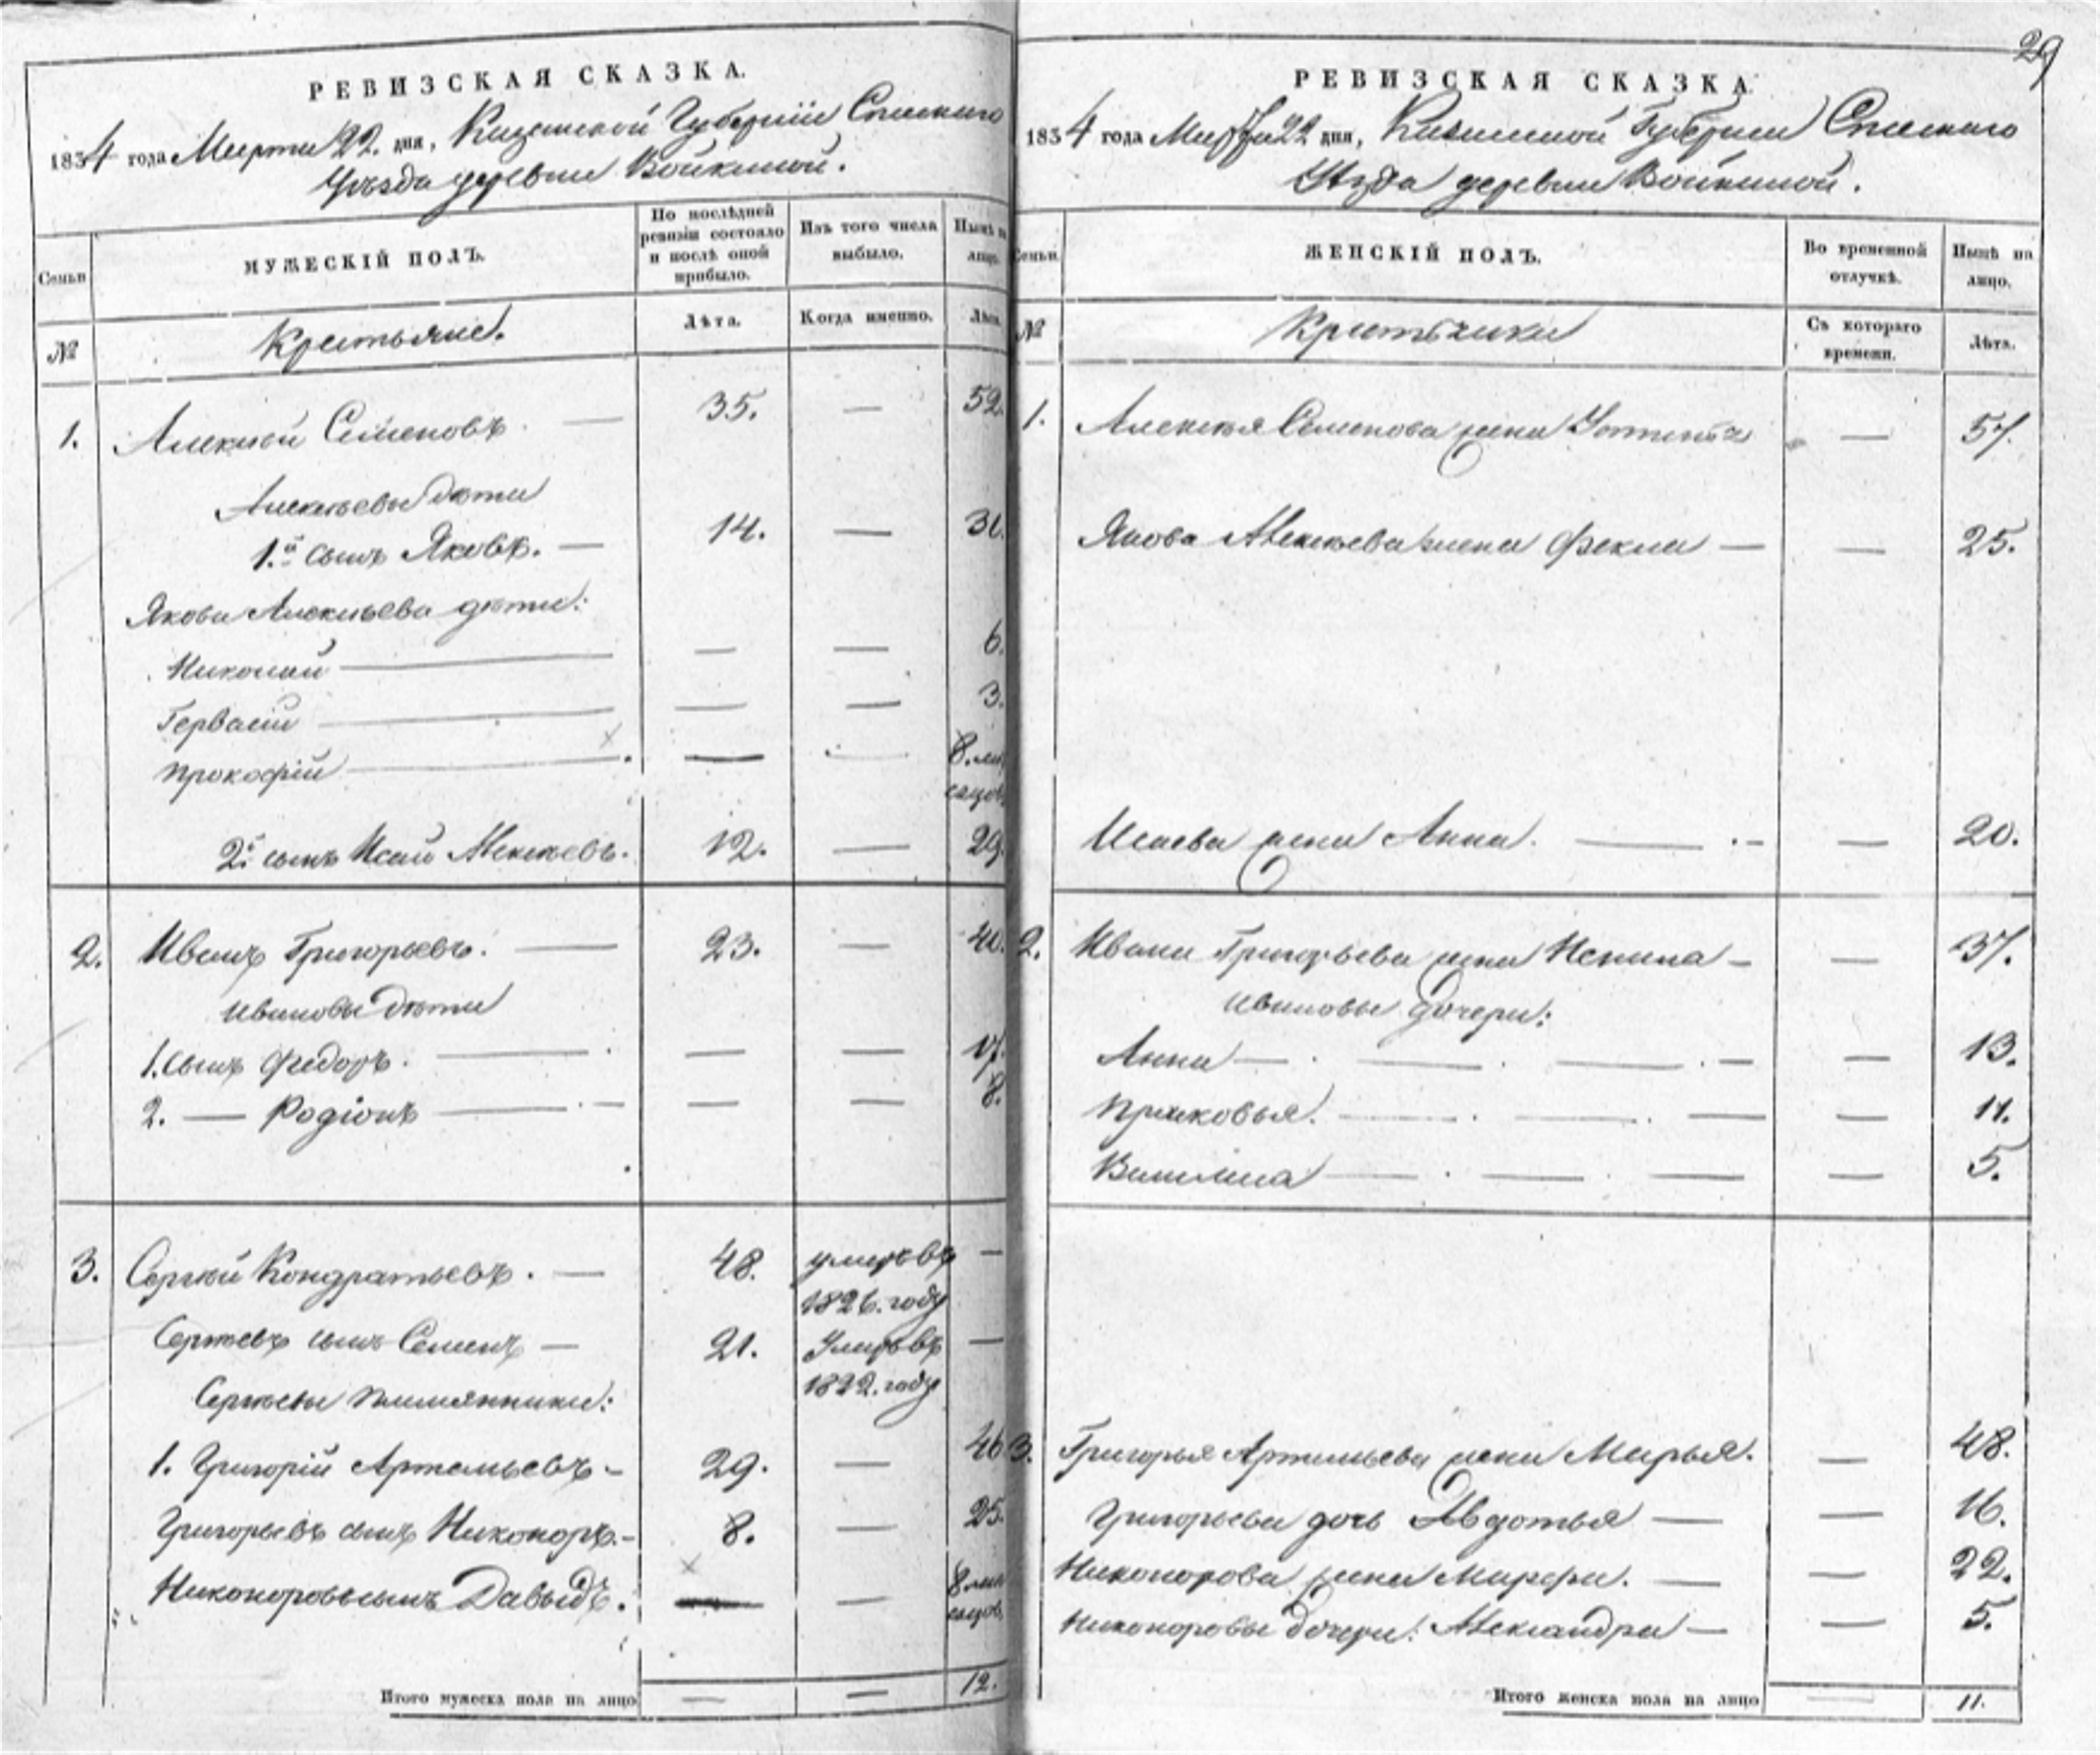 29
РЕВИЗСКАЯ СКАЗКА.
1834 года Марта 22. дня, Казанской Губернии Спаского
Уѣзда деревни Войкиной.
Семьи
МУЖЕСКІЙ ПОЛЪ.
По послѣдней ревизіи состояло и послѣ оной прибыло.
Изъ того числа выбыло.
Нынѣ на лицо.
№
Крестьяне.
Лѣта.
Когда именно.
Лѣта.
1. Алексѣй Семеновъ. — 35. — 52.
Алексѣевы дѣти
1.й сынъ Яковъ. — 14. — 31
Якова Алексѣева дѣти:
Николай — — — 6.
Гервасій — — — 3.
Прокофій — — — 8. мѣсяцов
2.й сынъ Исай Алексѣевъ. 12. — 29.
2. Иванъ Григорьевъ. — 23. — 40.
Ивановы дѣти
1. сынъ Федоръ. — — — 17.
2. — Родіонъ — — — 8.
3. Сергѣй Кондратьевъ. — 48. умеръ въ 1826. году —
Сергѣевъ сынъ Семенъ — 21. Умеръ въ 1822. году —
Сергѣевы племянники:
1. Григорій Артемьевъ — 29. — 46
Григорьевъ сынъ Никоноръ. — 8. — 25.
Никоноровъ сынъ Давыдъ. — — 8 мѣсяцов
Итого мужеска пола на лицо — — 12.
РЕВИЗСКАЯ СКАЗКА
1834 года Марта 22 дня, Казанской Губернии Спаского
Уѣзда деревни Войкиной.
Семьи.
ЖЕНСКІЙ ПОЛЪ.
Во временной отлучкѣ.
Нынѣ на лицо.
№
Крестьянки
Съ котораго времени.
Лѣта.
1. Алексѣя Семенова жена Устинья — 57.
Якова Алексѣева жена Фекла — — 25.
Исаева жена Анна. — — 20.
2. Ивана Григорьева жена — — 37.
Ивановы дочери:
Анна — — 13.
Прасковья. — — 11.
— — 5.
3. Григорья Артемьева жена Марья. — 48.
Григорьева дочь Авдотья — — 16.
Никонорова жена Марфа. — — 22.
Никоноровы дочери: Александра — — 5.
Итого женска пола на лицо — 11.